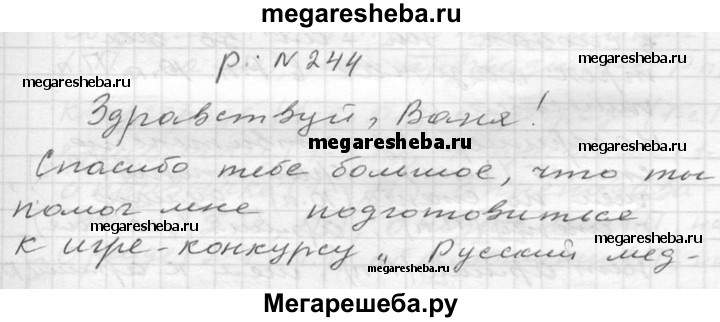 megaresheba.ru
р. N 244
megaresheba.ru
megaresheba.ru
Здравствуй, Ваня!
megaresheba.ru
megaresheba.ru
Спасибо тебе большое, что ты
помог мне подготовиться
megaresheba.ru
megaresheba.ru
к игре-конкурсу „ Русский мед-
megaresheba.ru
Мегарешеба.ру